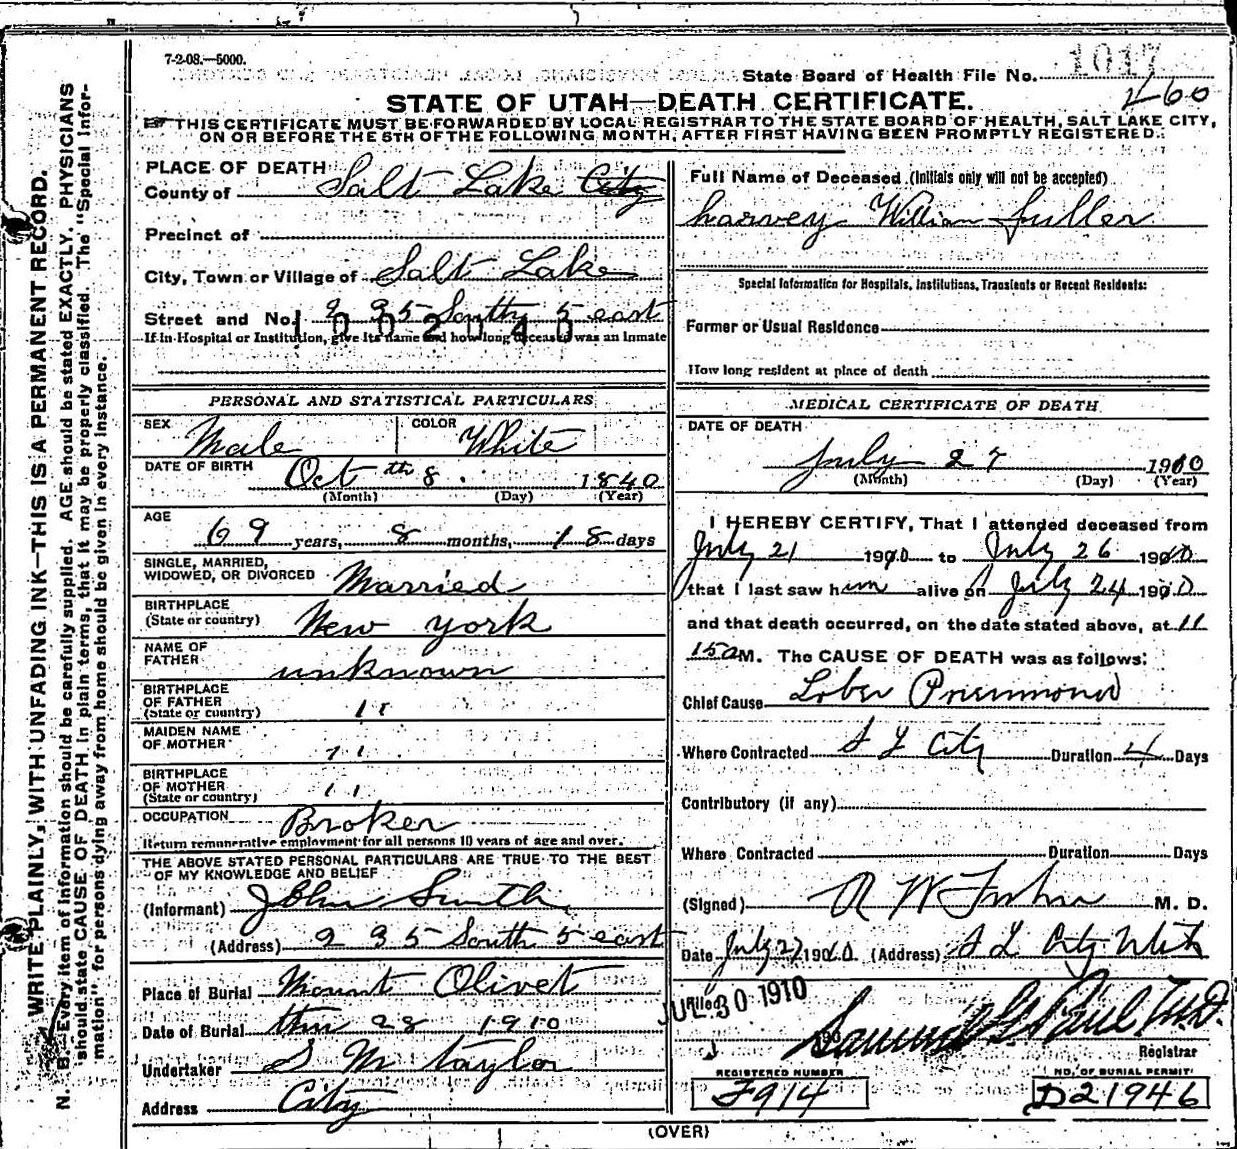 7-2-08.—5000.
State Board of Health File No. 1017
460
STATE OF UTAH—DEATH CERTIFICATE.
THIS CERTIFICATE MUST BE FORWARDED BY LOCAL REGISTRAR TO THE STATE BOARD OF HEALTH, SALT LAKE CITY,
ON OR BEFORE THE 5TH OF THE FOLLOWING MONTH, AFTER FIRST HAVING BEEN PROMPTLY REGISTERED.
PLACE OF DEATH
County of Salt Lake City
Precinct of
City, Town or Village of Salt Lake
Street and No. 235 South 5 east
1002040
If in Hospital or Institution, give its name and how long deceased was an inmate
PERSONAL AND STATISTICAL PARTICULARS
SEX Male COLOR White
DATE OF BIRTH Oct th 8. 1840
(Month) (Day) (Year)
AGE 69 years, 8 months, 18 days
SINGLE, MARRIED,
WIDOWED, OR DIVORCED Married
BIRTHPLACE
(State or country) New york
NAME OF
FATHER unknown
BIRTHPLACE
OF FATHER
(State or country) 11
MAIDEN NAME
OF MOTHER 11
BIRTHPLACE
OF MOTHER
(State or country) 11
OCCUPATION Broker
Return remunerative employment for all persons 10 years of age and over.
THE ABOVE STATED PERSONAL PARTICULARS ARE TRUE TO THE BEST
OF MY KNOWLEDGE AND BELIEF
(Informant) John Smith
(Address) 235 South 5 east
Place of Burial Mount Olivet
Date of Burial thu 28 1910
Undertaker S M taylor
Address City
Full Name of Deceased (Initials only will not be accepted)
harvey William fuller
Special Information for Hospitals, Institutions, Transients or Recent Residents:
Former or Usual Residence
How long resident at place of death
MEDICAL CERTIFICATE OF DEATH
DATE OF DEATH
july 27 1910
(Month) (Day) (Year)
I HEREBY CERTIFY, That I attended deceased from
July 21 1910 to July 26 1910
that I last saw him alive on July 24 1910
and that death occurred, on the date stated above, at 11
15a M. The CAUSE OF DEATH was as follows:
Chief Cause Lober Pneumonia
Where Contracted S L City Duration 4 Days
Contributory (if any)
Where Contracted Duration Days
(Signed) R W Fisher M. D.
Date July 27 1910 (Address) S L City Utah
Filed JUL 30 1910
190
Samuel G. Paul M.D.
Registrar
REGISTERED NUMBER
F914
NO. OF BURIAL PERMIT
D21946
(OVER)
WRITE PLAINLY, WITH UNFADING INK—THIS IS A PERMANENT RECORD.
N. B.—Every item of information should be carefully supplied. AGE should be stated EXACTLY. PHYSICIANS
should state CAUSE OF DEATH in plain terms, that it may be properly classified. The "Special Infor-
mation" for persons dying away from home should be given in every instance.